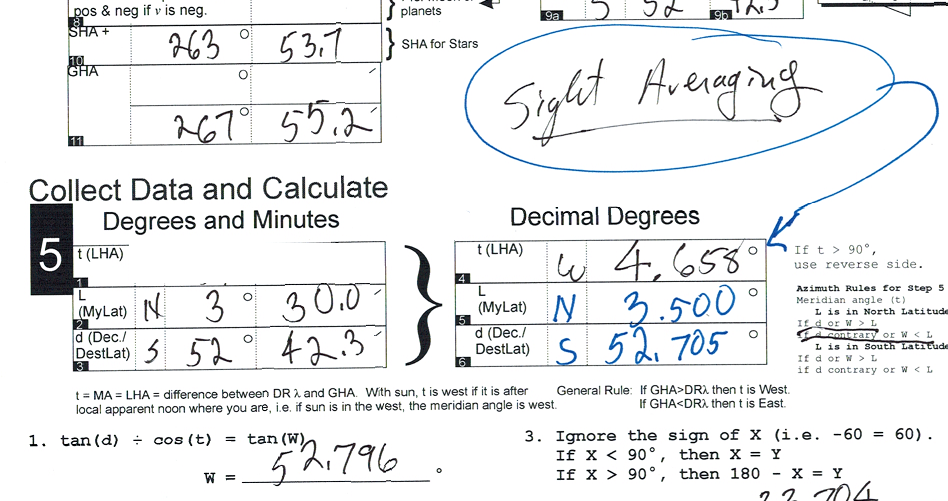 pos & neg if v is neg.
8
planets
9a 5 52 9b 42.3
SHA +
263 ° 53.7
10
SHA for Stars
GHA
°
267° 55.2
11
Sight Averaging
Collect Data and Calculate
Degrees and Minutes
Decimal Degrees
5
t (LHA)
1
L
(MyLat) N 3 ° 30.0
2
d (Dec./
DestLat) S 52 ° 42.3
3
t (LHA)
W 4.658 °
4
L
(MyLat) N 3.500 °
5
d (Dec./
DestLat) S 52.705 °
6
If t > 90°,
use reverse side.
Azimuth Rules for Step 5
Meridian angle (t)
L is in North Latitude
If d or W > L
If d contrary or W < L
L is in South Latitude
If d or W > L
if d contrary or W < L
t = MA = LHA = difference between DR λ and GHA. With sun, t is west if it is after
local apparent noon where you are, i.e. if sun is in the west, the meridian angle is west.
General Rule: If GHA>DRλ then t is West.
If GHA<DRλ then t is East.
1. tan(d) ÷ cos(t) = tan(W)
W = 52.796 °
3. Ignore the sign of X (i.e. -60 = 60).
If X < 90°, then X = Y
If X > 90°, then 180 - X = Y